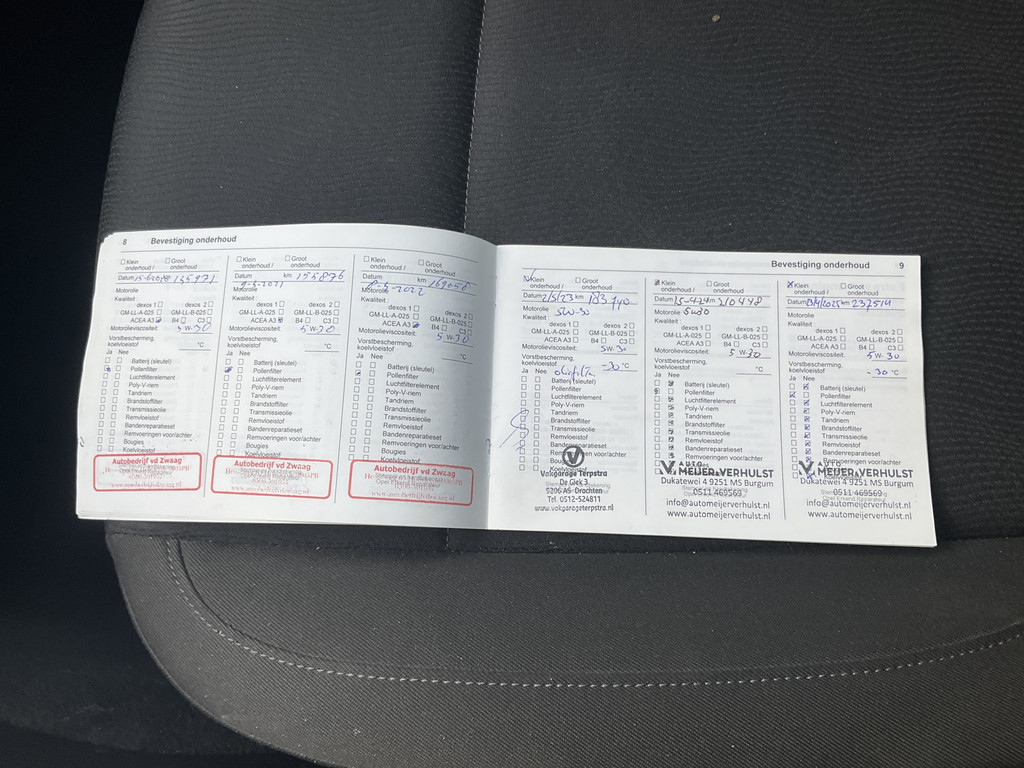 8 Bevestiging onderhoud
Klein onderhoud / Groot onderhoud
Datum km 135971
Motorolie
Kwaliteit
dexos 1 dexos 2
GM-LL-A-025 GM-LL-B-025
ACEA A3 B4 C3
Motorolieviscositeit: 5 W-30
Vorstbescherming, koelvloeistof °C
Ja Nee
Batterij (sleutel)
Pollenfilter
Luchtfilterelement
Poly-V-riem
Tandriem
Brandstoffilter
Transmissieolie
Remvloeistof
Bandenreparatieset
Remvoeringen voor/achter
Bougies
Koelvloeistof
Autobedrijf vd Zwaag
Klein onderhoud / Groot onderhoud
Datum km 155876
Motorolie
Kwaliteit
dexos 1 dexos 2
GM-LL-A-025 GM-LL-B-025
ACEA A3 B4 C3
Motorolieviscositeit: 5 W-30
Vorstbescherming, koelvloeistof °C
Ja Nee
Batterij (sleutel)
Pollenfilter
Luchtfilterelement
Poly-V-riem
Tandriem
Brandstoffilter
Transmissieolie
Remvloeistof
Bandenreparatieset
Remvoeringen voor/achter
Bougies
Koelvloeistof
Autobedrijf vd Zwaag
Klein onderhoud / Groot onderhoud
Datum km 169058
Motorolie
Kwaliteit :
dexos 1 dexos 2
GM-LL-A-025 GM-LL-B-025
ACEA A3 B4 C3
Motorolieviscositeit: 5 W-30
Vorstbescherming, koelvloeistof °C
Ja Nee
Batterij (sleutel)
Pollenfilter
Luchtfilterelement
Poly-V-riem
Tandriem
Brandstoffilter
Transmissieolie
Remvloeistof
Bandenreparatieset
Remvoeringen voor/achter
Bougies
Koelvloeistof
Autobedrijf vd Zwaag
Bevestiging onderhoud 9
Klein onderhoud / Groot onderhoud
Datum 2/5/23 km 183740
Motorolie 5W-30
Kwaliteit
dexos 1 dexos 2
GM-LL-A-025 GM-LL-B-025
ACEA A3 B4 C3
Motorolieviscositeit: 5W-30
Vorstbescherming, koelvloeistof -30 °C
Ja Nee
Batterij (sleutel)
Pollenfilter
Luchtfilterelement
Poly-V-riem
Tandriem
Brandstoffilter
Transmissieolie
Remvloeistof
Bandenreparatieset
Vakgarage Terpstra
De Giek 3
9206 AS Drachten
Tel. 0512-524811
www.vakgarageterpstra.nl
Klein onderhoud / Groot onderhoud
Datum 15-4-24 km 210448
Motorolie 5W30
Kwaliteit :
dexos 1 dexos 2
GM-LL-A-025 GM-LL-B-025
ACEA A3 B4 C3
Motorolieviscositeit: 5 W-30
Vorstbescherming, koelvloeistof °C
Ja Nee
Batterij (sleutel)
Pollenfilter
Luchtfilterelement
Poly-V-riem
Tandriem
Brandstoffilter
Transmissieolie
Remvloeistof
Bandenreparatieset
Remvoeringen voor/achter
AUTO
MEIJER & VERHULST
Dukatewei 4 9251 MS Burgum
0511 469569
info@automeijerverhulst.nl
www.automeijerverhulst.nl
Klein onderhoud / Groot onderhoud
Datum km 237514
Motorolie
Kwaliteit :
dexos 1 dexos 2
GM-LL-A-025 GM-LL-B-025
ACEA A3 B4 C3
Motorolieviscositeit: 5W-30
Vorstbescherming, koelvloeistof -30 °C
Ja Nee
Batterij (sleutel)
Pollenfilter
Luchtfilterelement
Poly-V-riem
Tandriem
Brandstoffilter
Transmissieolie
Remvloeistof
Bandenreparatieset
Remvoeringen voor/achter
AUTO
MEIJER & VERHULST
Dukatewei 4 9251 MS Burgum
0511 469569
info@automeijerverhulst.nl
www.automeijerverhulst.nl